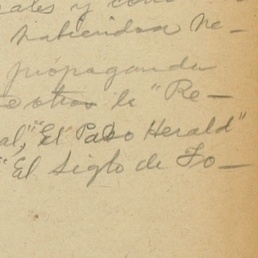 ales y con
habiendose he-
propaganda
otros le "Re-
al," "El Paso Herald"
"El Siglo de To-